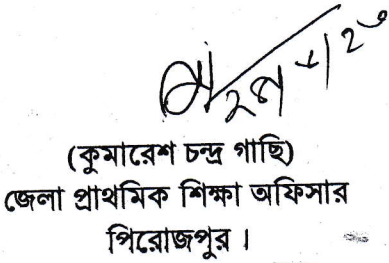 (কুমারেশ চন্দ্র গাছি)
জেলা প্রাথমিক শিক্ষা অফিসার
পিরোজপুর।